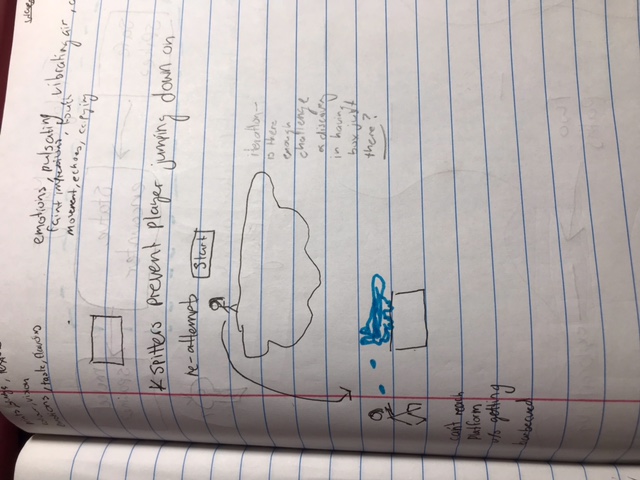 emotions, pulsating, vibrating air,
faint impressions,
movement, echoes, copying
* spitters prevent player jumping down on
re-attempts
Start
iteration-
is there
enough
challenge
& discovery
in having
box just
there?
can't reach
platform
w/o getting
barbecued